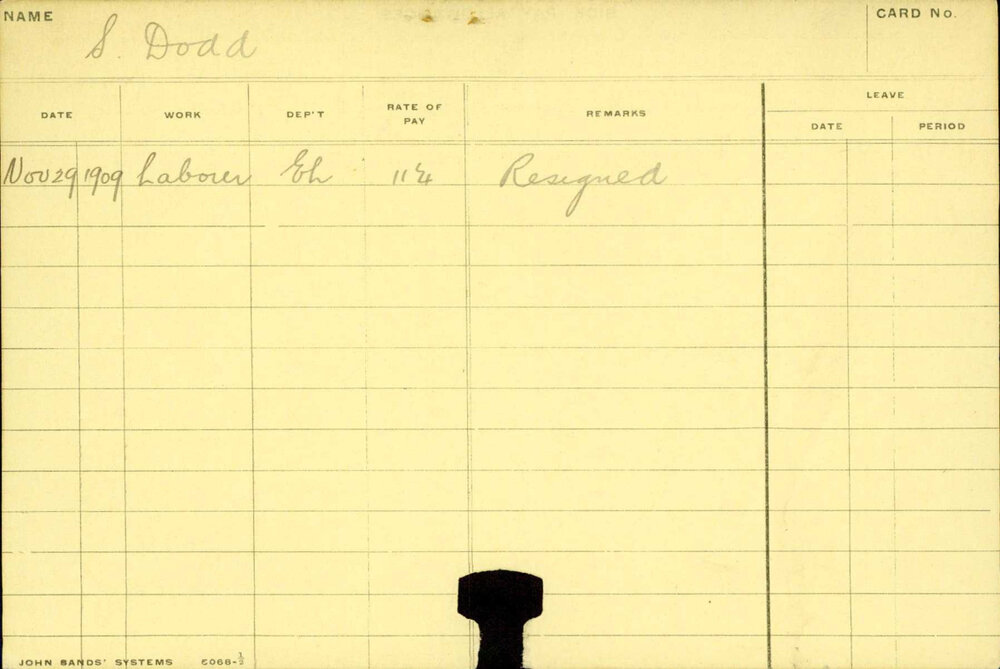 NAME S. Dodd CARD No.
DATE WORK DEP'T RATE OF PAY REMARKS LEAVE
DATE PERIOD
Nov 29 1909 Laborer Eh Resigned
JOHN SANDS' SYSTEMS 5066-½